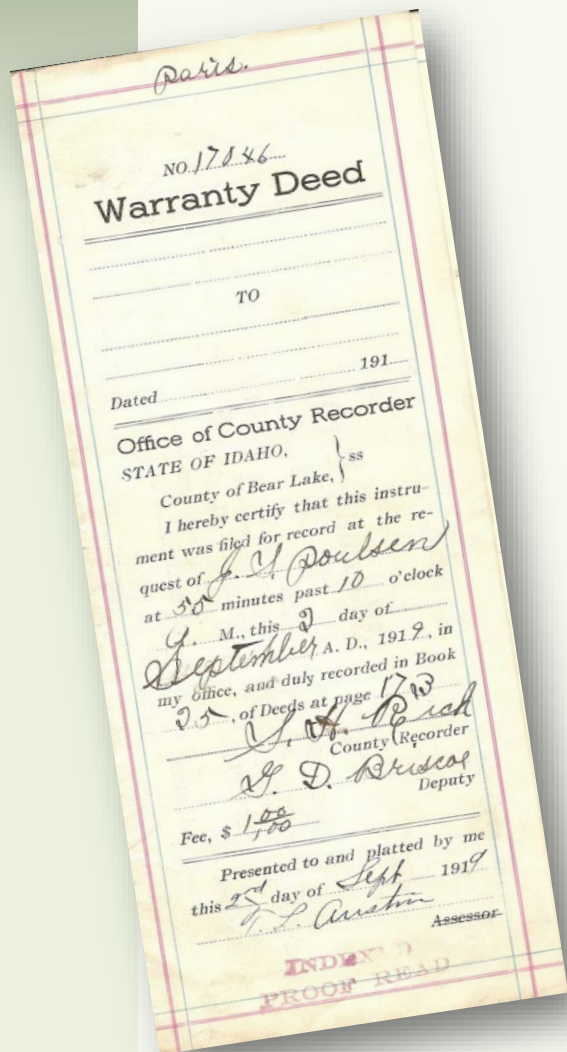 Paris.
NO. 17846
Warranty Deed
TO
Dated 191
Office of County Recorder
STATE OF IDAHO,
County of Bear Lake, } ss
I hereby certify that this instru-
ment was filed for record at the re-
quest of J. Y. Poulsen
at 55 minutes past 10 o'clock
M., this 2 day of
September A. D., 1919, in
my office, and duly recorded in Book
25, of Deeds at page
S. H. Rich
County Recorder
G. D. Briscoe
Deputy
Fee, $ 1 00/100
Presented to and platted by me
this 2nd day of Sept 1919
T. L. Austin
Assessor
INDEX D
PROOF READ